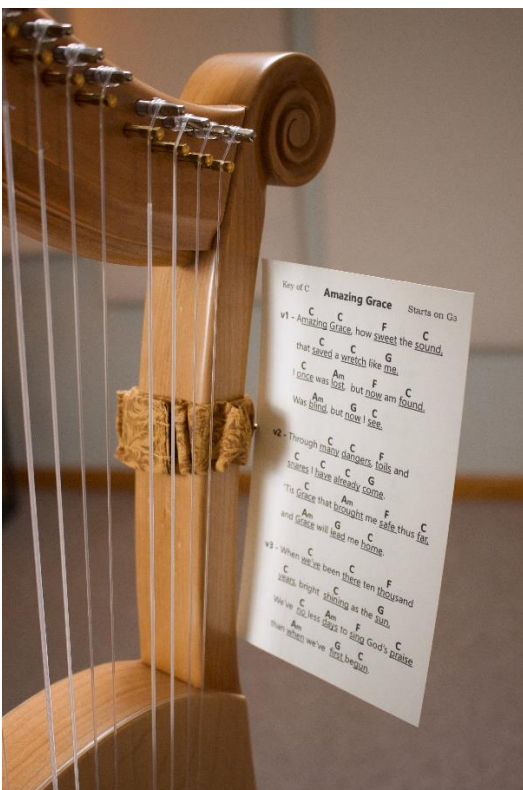 Key of C Amazing Grace Starts on G3
C C F C
v1 - Amazing Grace, how sweet the sound,
C C G
that saved a wretch like me.
C Am F C
I once was lost, but now am found,
Am G C
Was blind, but now I see.
C C F
v2 - Through many dangers, toils and
C C C G
snares I have already come.
C Am F C
'Tis Grace that brought me safe thus far,
Am G C
and Grace will lead me home.
C C F
v3 - When we've been there ten thousand
C C G
years, bright shining as the sun,
C Am F C
We've no less days to sing God's praise
Am G C
than when we've first begun.